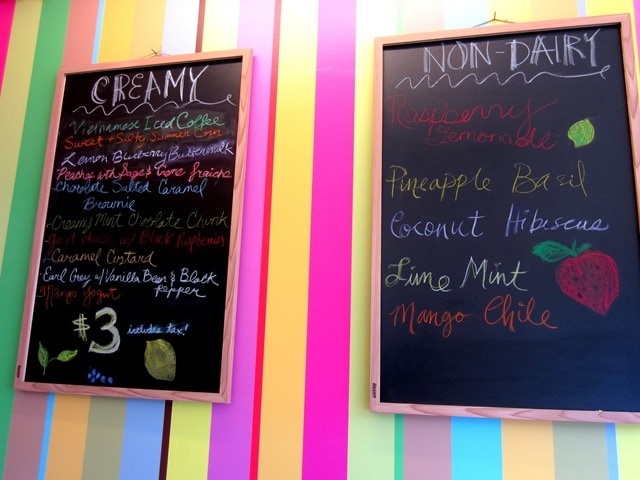 CREAMY
Vietnamese Iced Coffee
Sweet + Salty Summer Corn
Lemon Blueberry Buttermilk
Peaches with Sage & Creme fraiche
Chocolate Salted Caramel
Brownie
Creamy Mint Chocolate Chunk
Goat cheese w/ Black Raspberries
Caramel Custard
Earl Grey w/ Vanilla Bean & Black
Pepper
Mango Yogurt
$3 includes tax!
NON-DAIRY
Raspberry
Lemonade
Pineapple Basil
Coconut Hibiscus
Lime Mint
Mango Chile